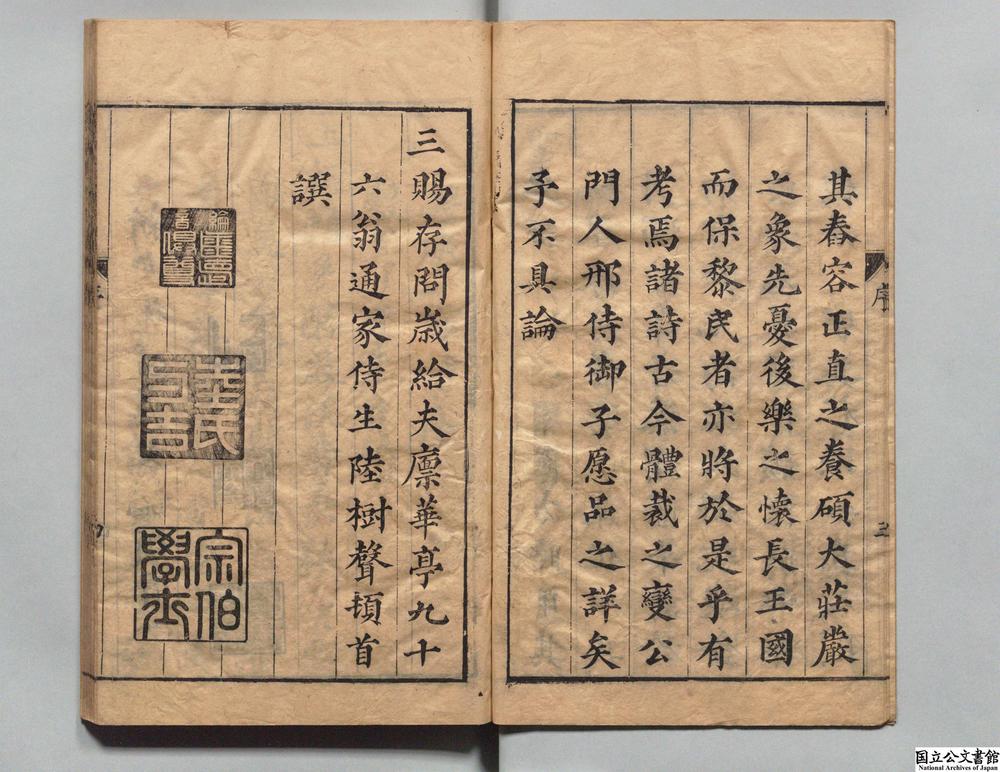 其舂容正直之養碩大莊嚴
之象先憂後樂之懷長王國
而保黎民者亦將於是乎有
考焉諸詩古今體裁之變公
門人邢侍御子愿品之詳矣
予不具論
序
三
三賜存問歲給夫廩華亭九十
六翁通家侍生陸樹聲頓首
譔
宗伯
學士
国立公文書館
National Archives of Japan